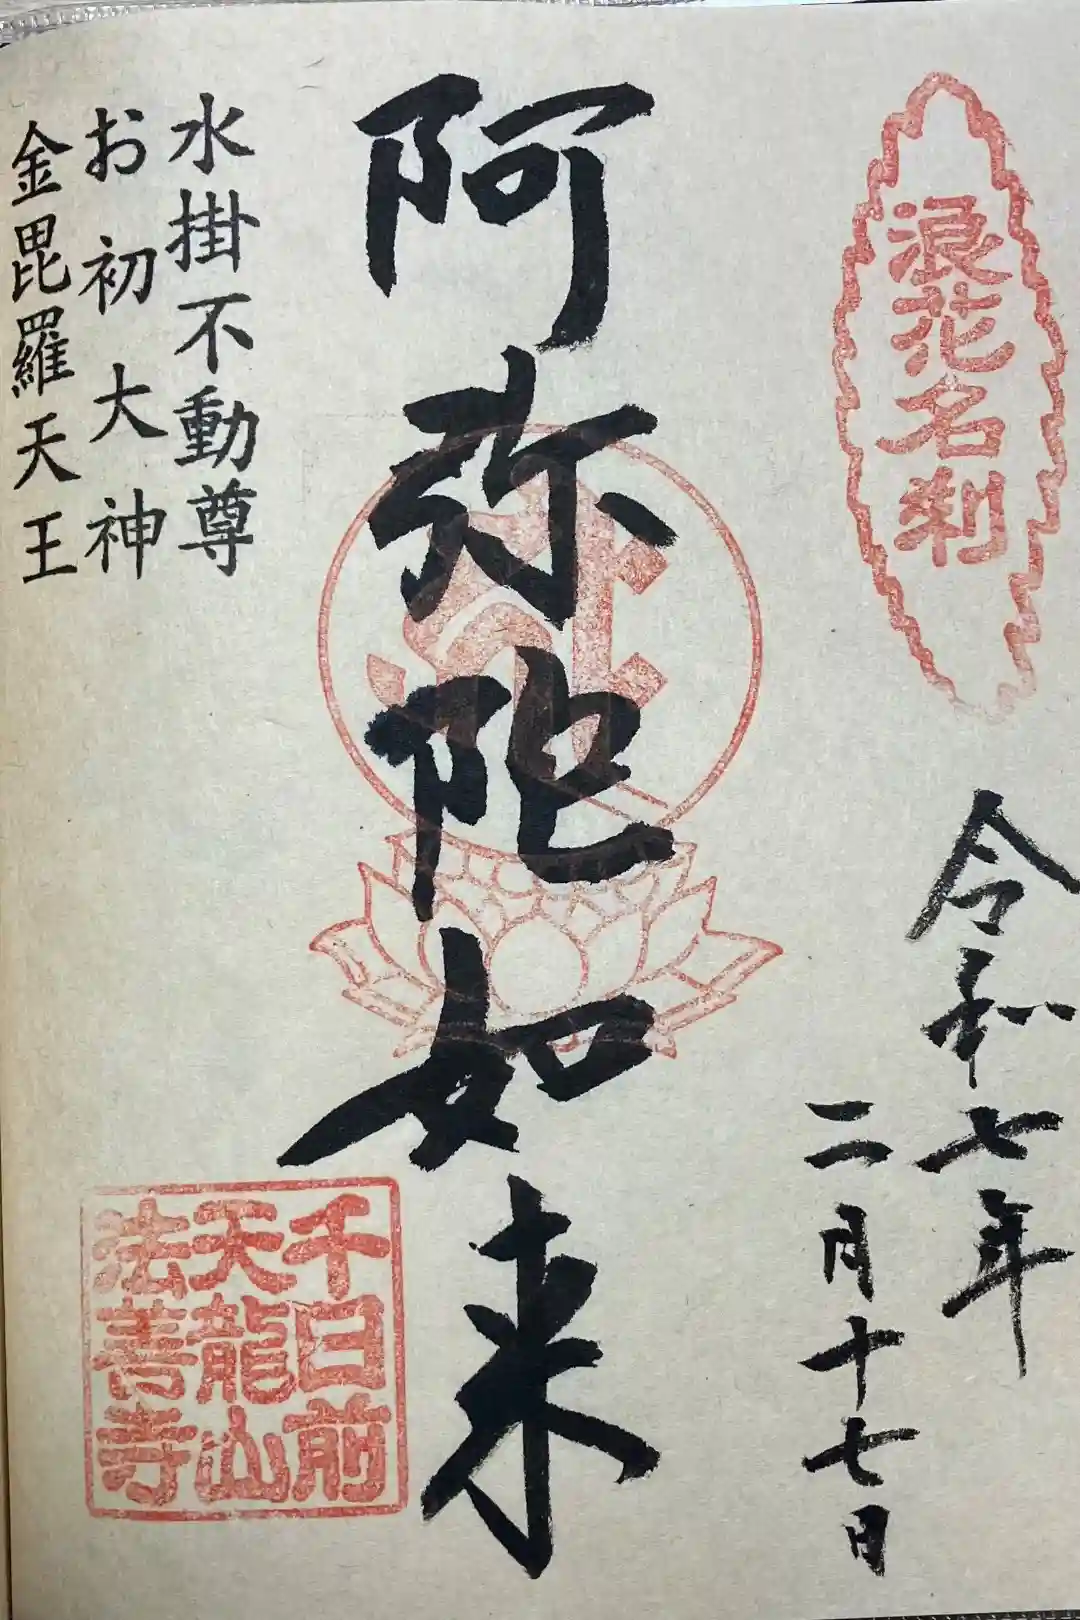 浪花名刹
令和七年
二月十七日
阿弥陀如来
水掛不動尊
お初大神
金毘羅天王
千日前
天龍山
法善寺